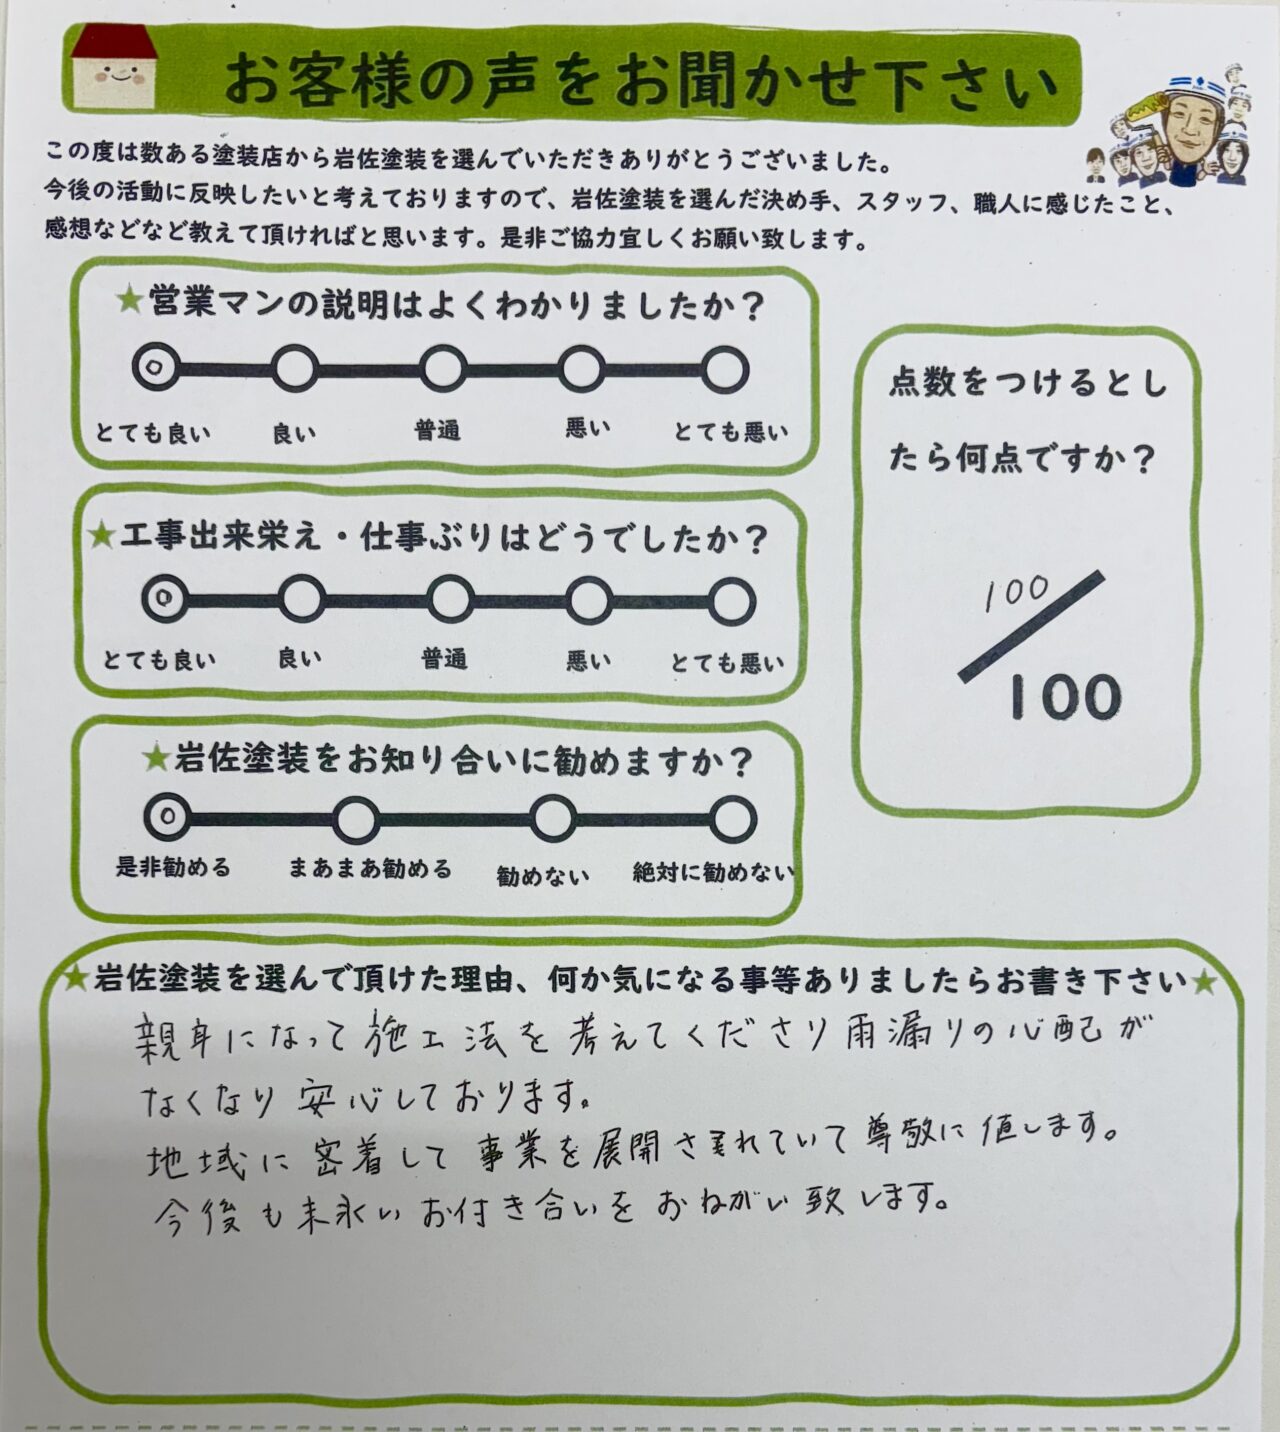 お客様の声をお聞かせ下さい
この度は数ある塗装店から岩佐塗装を選んでいただきありがとうございました。
今後の活動に反映したいと考えておりますので、岩佐塗装を選んだ決め手、スタッフ、職人に感じたこと、
感想などなど教えて頂ければと思います。是非ご協力宜しくお願い致します。
★営業マンの説明はよくわかりましたか？
とても良い 良い 普通 悪い とても悪い
★工事出来栄え・仕事ぶりはどうでしたか？
とても良い 良い 普通 悪い とても悪い
★岩佐塗装をお知り合いに勧めますか？
是非勧める まあまあ勧める 勧めない 絶対に勧めない
点数をつけるとし
たら何点ですか？
100
100
★岩佐塗装を選んで頂けた理由、何か気になる事等ありましたらお書き下さい★
親身になって施工法を考えてくださり雨漏りの心配が
なくなり安心しております。
地域に密着して事業を展開されていて尊敬に値します。
今後も末永いお付き合いをおねがい致します。